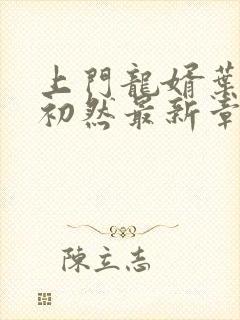 上門龍婿葉
初然最新章
陳立志